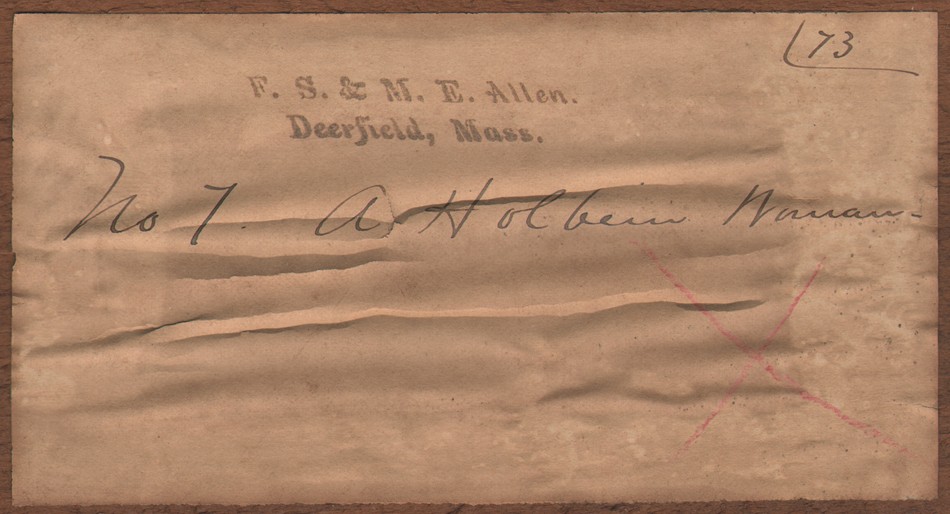 73
F. S. & M. E. Allen.
Deerfield, Mass.
No 7. A Holbein Woman-